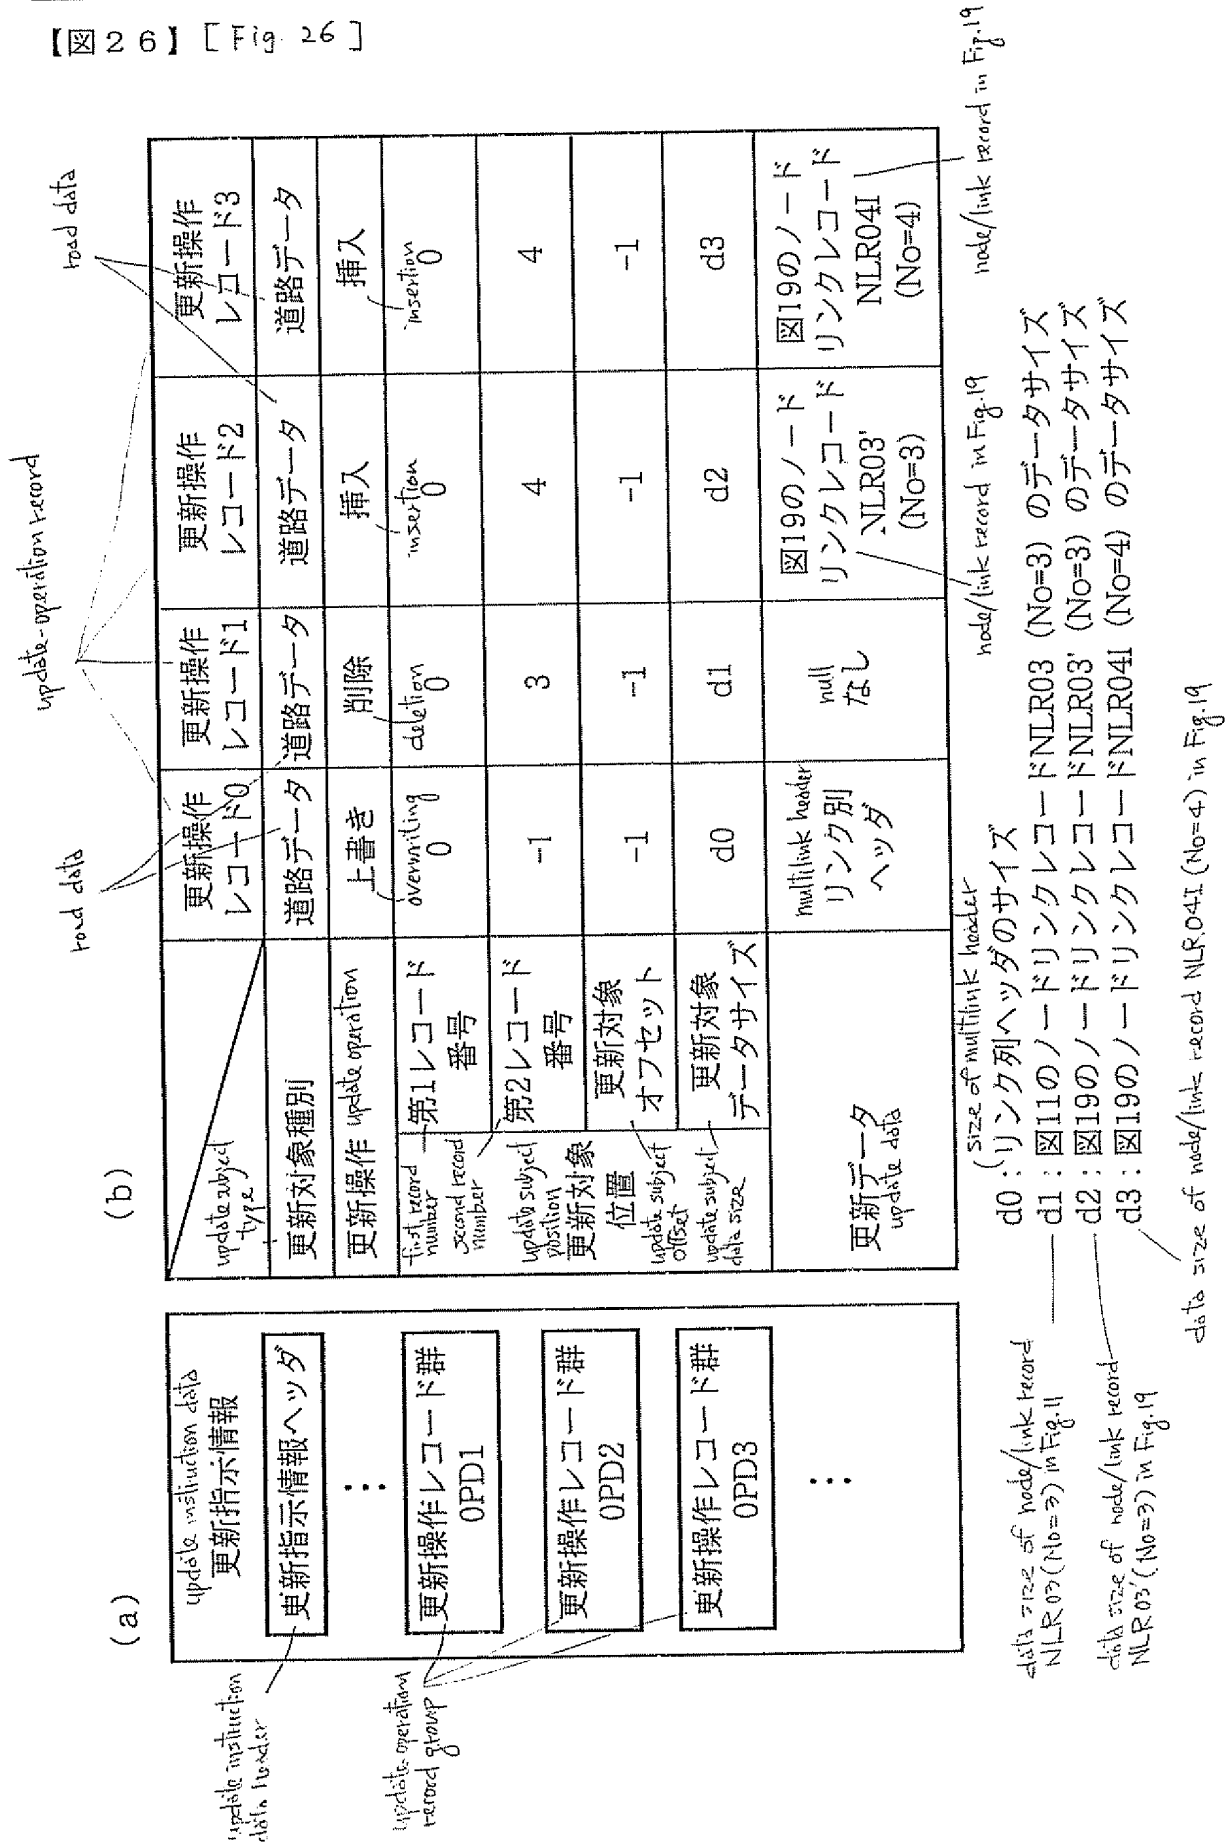 【図26】 [Fig. 26]
(a)
update instruction data
更新指示情報
更新指示情報ヘッダ
update instruction
data header
⋮
更新操作レコード群
OPD1
更新操作レコード群
OPD2
更新操作レコード群
OPD3
⋮
update-operation
record group
(b)
update-operation record
road data
road data
更新操作
レコード0
更新操作
レコード1
更新操作
レコード2
更新操作
レコード3
update subject
type
更新対象種別
道路データ
道路データ
道路データ
道路データ
更新操作 update operation
上書き
overwriting
削除
deletion
挿入
insertion
挿入
insertion
update subject
position
更新対象
位置
first record
number
第1レコード
番号
0
0
0
0
second record
number
第2レコード
番号
-1
3
4
4
update subject
offset
更新対象
オフセット
-1
-1
-1
-1
update subject
data size
更新対象
データサイズ
d0
d1
d2
d3
更新データ
update data
multilink header
リンク別
ヘッダ
null
なし
図19のノード
リンクレコード
NLR03'
(No=3)
図19のノード
リンクレコード
NLR04I
(No=4)
node/link record in Fig.19
node/link record in Fig.19
size of multilink header
d0：リンク列ヘッダのサイズ
d1：図11のノードリンクレコードNLR03 (No=3) のデータサイズ
d2：図19のノードリンクレコードNLR03' (No=3) のデータサイズ
d3：図19のノードリンクレコードNLR04I (No=4) のデータサイズ
data size of node/link record
NLR03 (No=3) in Fig.11
data size of node/link record
NLR03' (No=3) in Fig.19
data size of node/link record NLR04I (No=4) in Fig.19